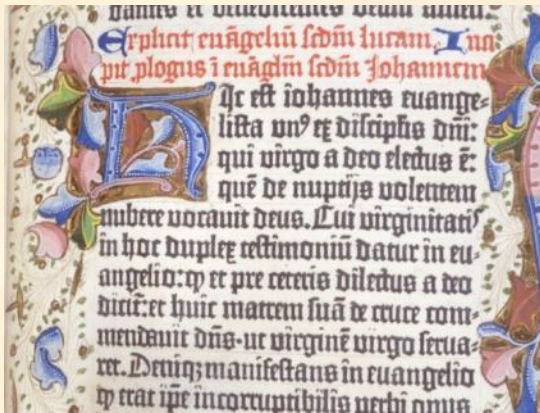 dantes et benedicentes deum amen.
Explicit euāgeliū scdm̄ lucam. Inci
pit ꝓlogus ī euāgliū scdm̄ Johannem
Hic est iohannes euange-
lista vnꝰ ex discipĺis dn̄i:
qui virgo a deo electus ē:
quē de nuptijs volentem
nubere vocauit deus. Cui virginitatꝭ
in hoc duplex testimoniū datur in eu-
angelio: ꝙ et pre ceteris dilectus a deo
dicit̄: et huic matrem suā de cruce com-
mendauit dn̄s · ut virginē virgo serua-
ret. Deniqꝫ manifestans in euangelio
ꝙ erat ip̄e incorruptibilis verbi opus